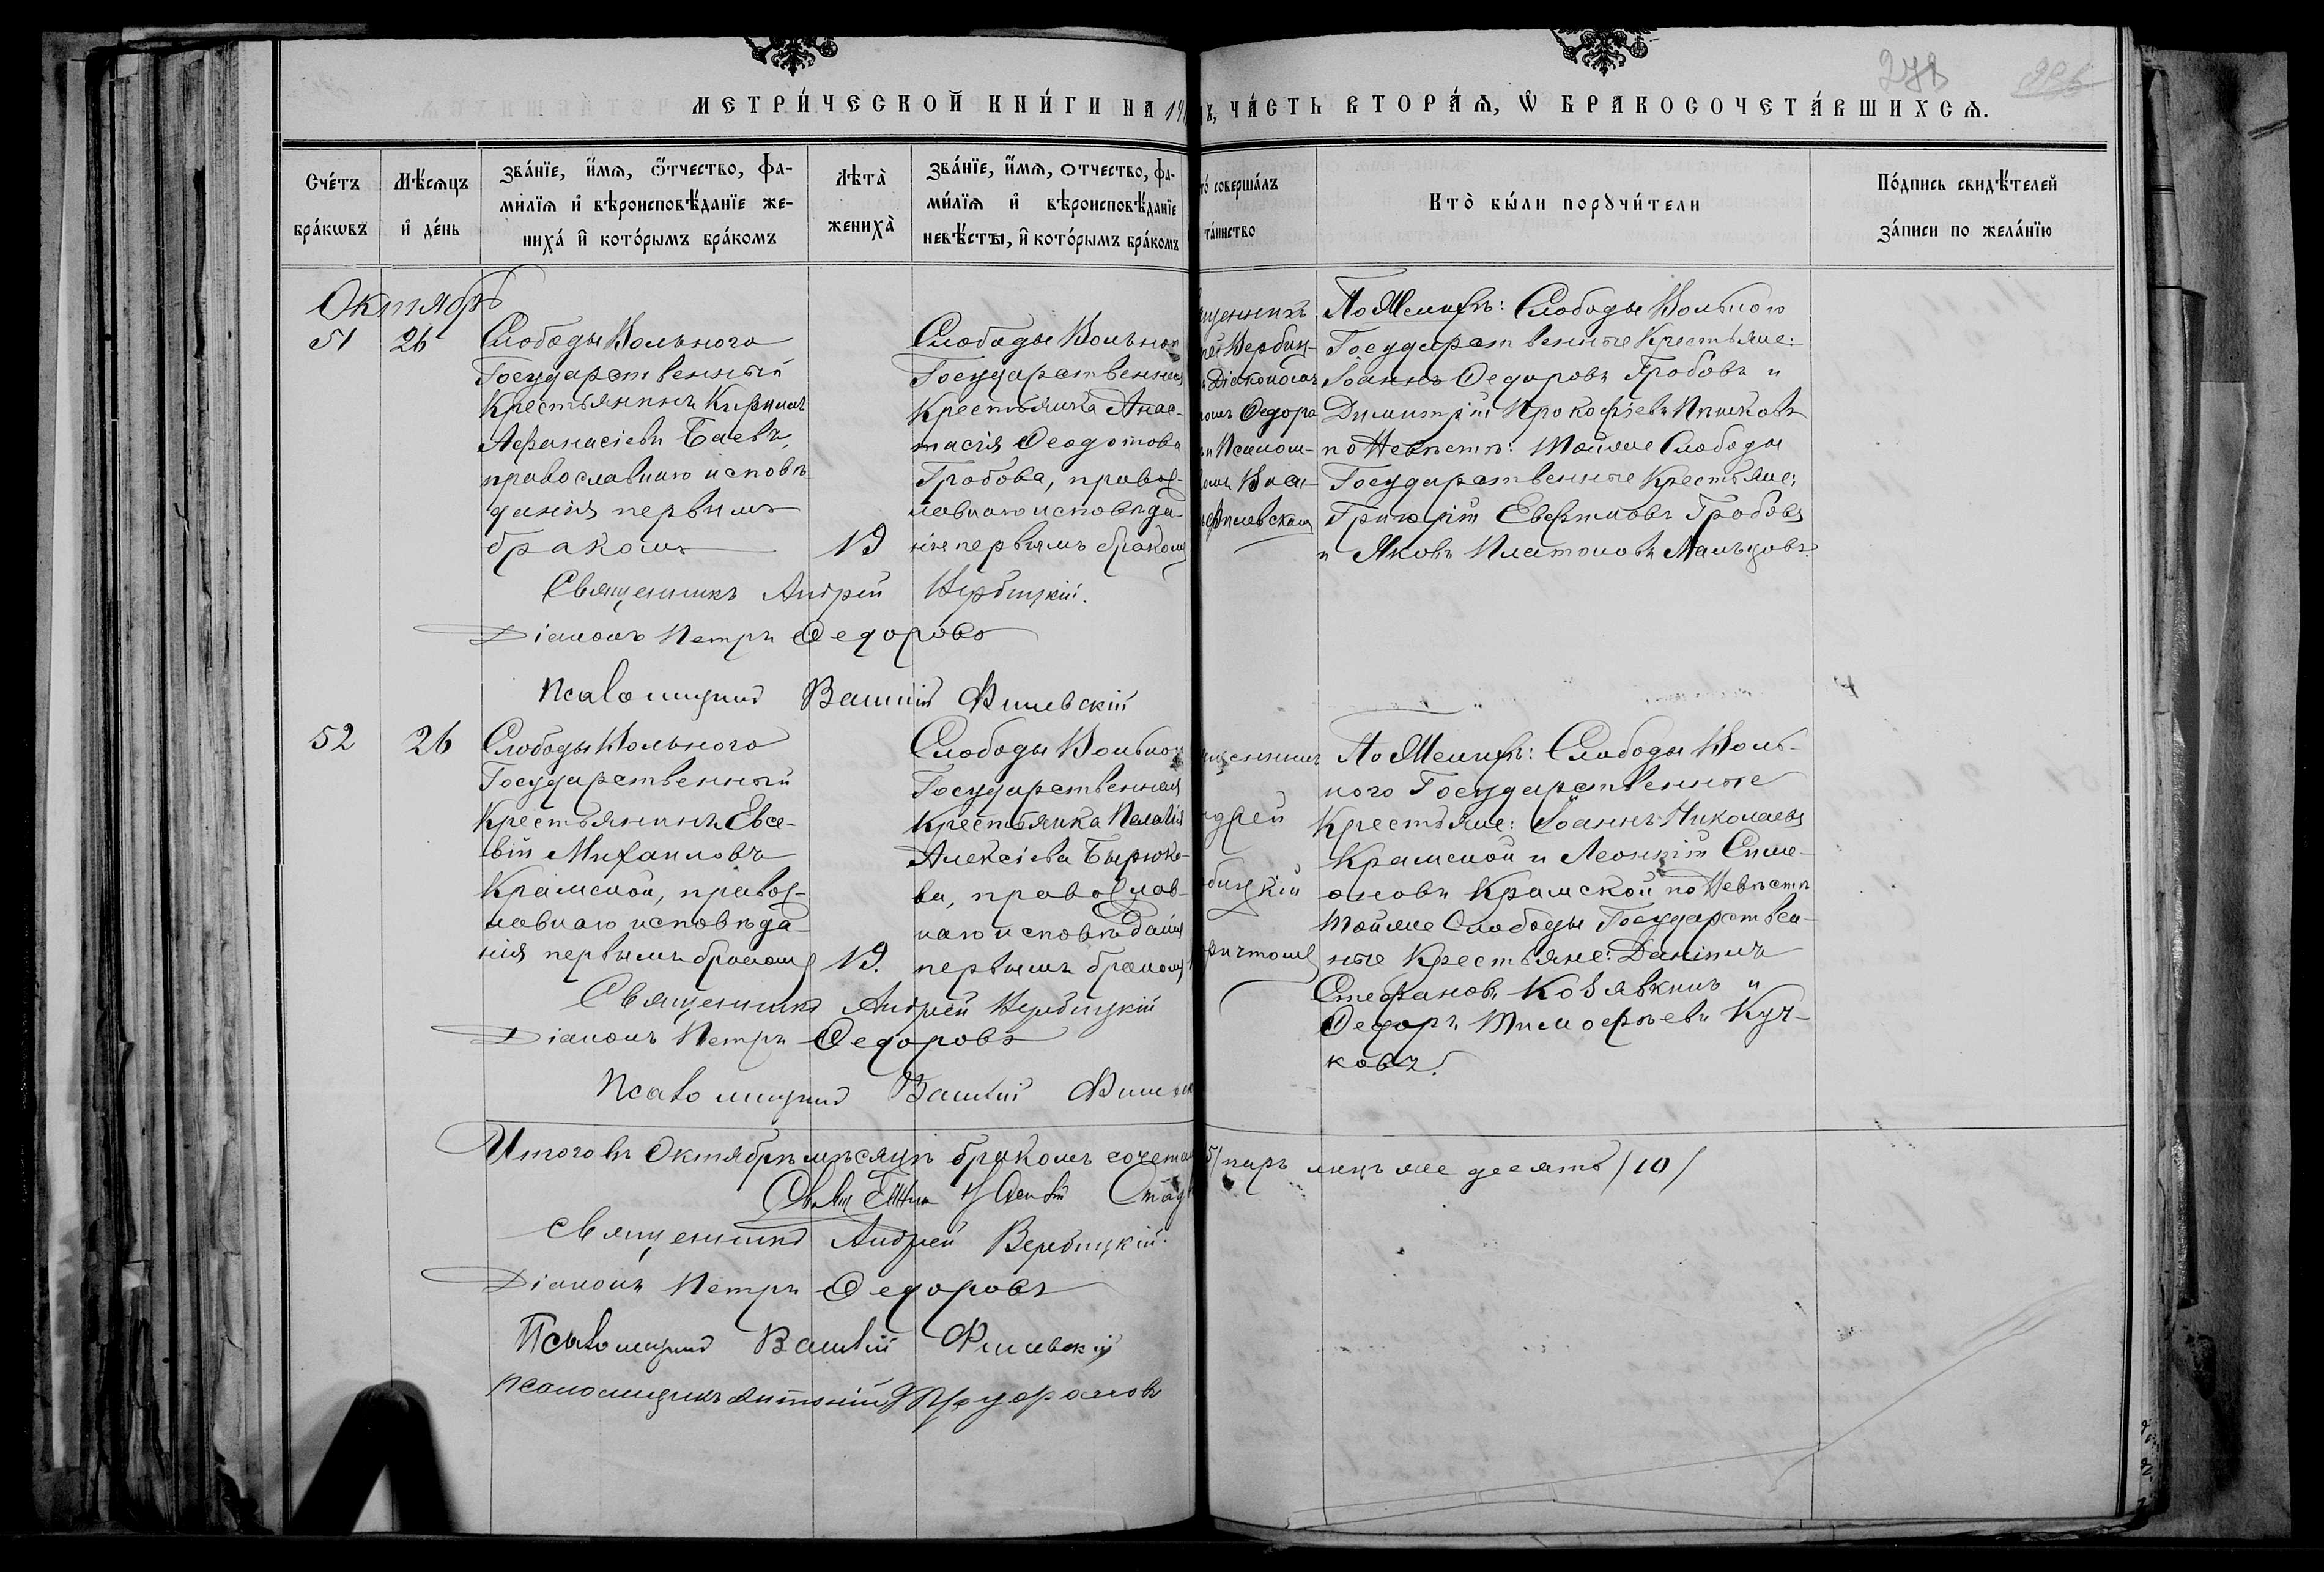 278
МЕТРИ́ЧЕСКОЙ КНИ́ГИ НА 19
ЧА́СТЬ ВТОРА́Ѧ, Ѿ БРАКОСОЧЕТА́ВШИХСѦ.
Сче́тъ бра́кѡвъ
Мѣ́сѧцъ и҆ де́нь
Зва́нїе, и҆́мѧ, ѻ҆́тчество, фа-
ми́лїѧ и҆ вѣроисповѣ́данїе же-
ниха́ и҆ кото́рымъ бра́комъ
Лѣта̀ жениха̀
Зва́нїе, и҆́мѧ, отчество, фа-
ми́лїѧ и҆ вѣроисповѣ́данїе
невѣ́сты, и҆ кото́рымъ бра́комъ
то́ соверша́лъ
та́инство
Кто̀ бы́ли порꙋчи́тели
По́дпись свидѣ́телей
за́писи по жела́нїю
Октябрь
51
26
Слободы Вольнаго
Государственный
Крестьянинъ Кириллъ
Афанасіевъ Баевъ,
православнаго исповѣ
данія первымъ
бракомъ
19
Слободы Вольнаго
Государственная
Крестьянка Анас-
тасія Ѳеодотова
Гробова, правос-
лавнаго исповѣда
нія первымъ бракомъ
щенникъ
рей Вербиц-
Діакономъ
ромъ Ѳедоро
и Псалом-
омъ Васи-
Филевскимъ
По Женихѣ: Слободы Вольнаго
Государственные Крестьяне:
Іоаннъ Ѳедоровъ Гробовъ и
Димитрій Прокофіевъ
по Невѣстѣ: Тойже Слободы
Государственные Крестьяне:
Григорій Гробовъ
и Яковъ Платоновъ Мальцовъ.
Священникъ Андрей Вербицкій.
Діаконъ Петръ Ѳедоровъ
Псаломщикъ Василій Филевскій
52
26
Слободы Вольнаго
Государственный
Крестьянинъ Евсе-
вій Михаиловъ
Крамской, правос-
лавнаго исповѣда-
нія первымъ бракомъ
19.
Слободы Вольнаго
Государственная
Крестьянка Пелагія
Алексіева Бирюко-
ва, православ-
наго исповѣданія
первымъ бракомъ
щенникъ
ндрей
бицкій
ричтомъ
По Женихѣ: Слободы Воль-
наго Государственные
Крестьяне: Іоаннъ Николаевъ
Крамской и Леонтій Симе-
оновъ Крамской по Невѣстѣ
тойже Слободы Государствен-
ные Крестьяне: Даніилъ
Стефановъ Козявкинъ и
Ѳедоръ Тимофѣевъ Куч-
ковъ.
Священникъ Андрей Вербицкій
Діаконъ Петръ Ѳедоровъ
Псаломщикъ Василій Филевск
Итого въ Октябрѣ мѣсяцѣ бракомъ сочета 5/ паръ лицъ же десять /10/
Священникъ Андрей Вербицкій.
Діаконъ Петръ Ѳедоровъ
Псаломщикъ Василій Филевскій
Псаломщикъ Антоній Труфановъ